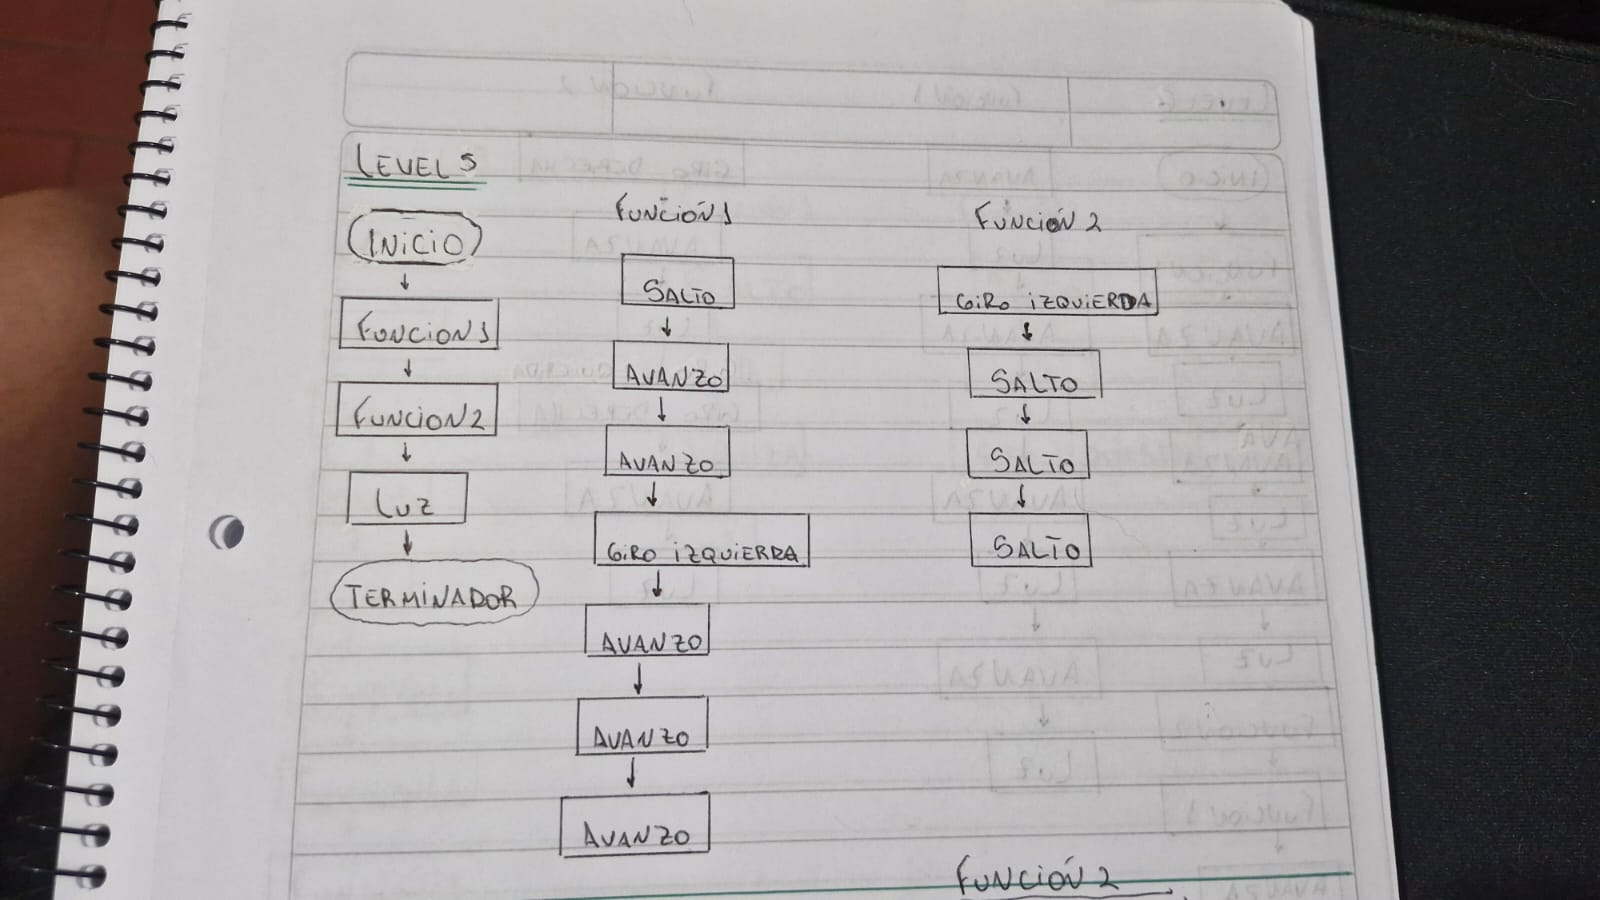 LEVEL 5
INICIO
FUNCION 1
FUNCION 2
LUZ
TERMINADOR
FUNCIÓN 1
SALTO
AVANZO
AVANZO
GIRO IZQUIERRA
AVANZO
AVANZO
AVANZO
FUNCIÓN 2
GIRO IZQUIERDA
SALTO
SALTO
SALTO
FUNCIÓN 2